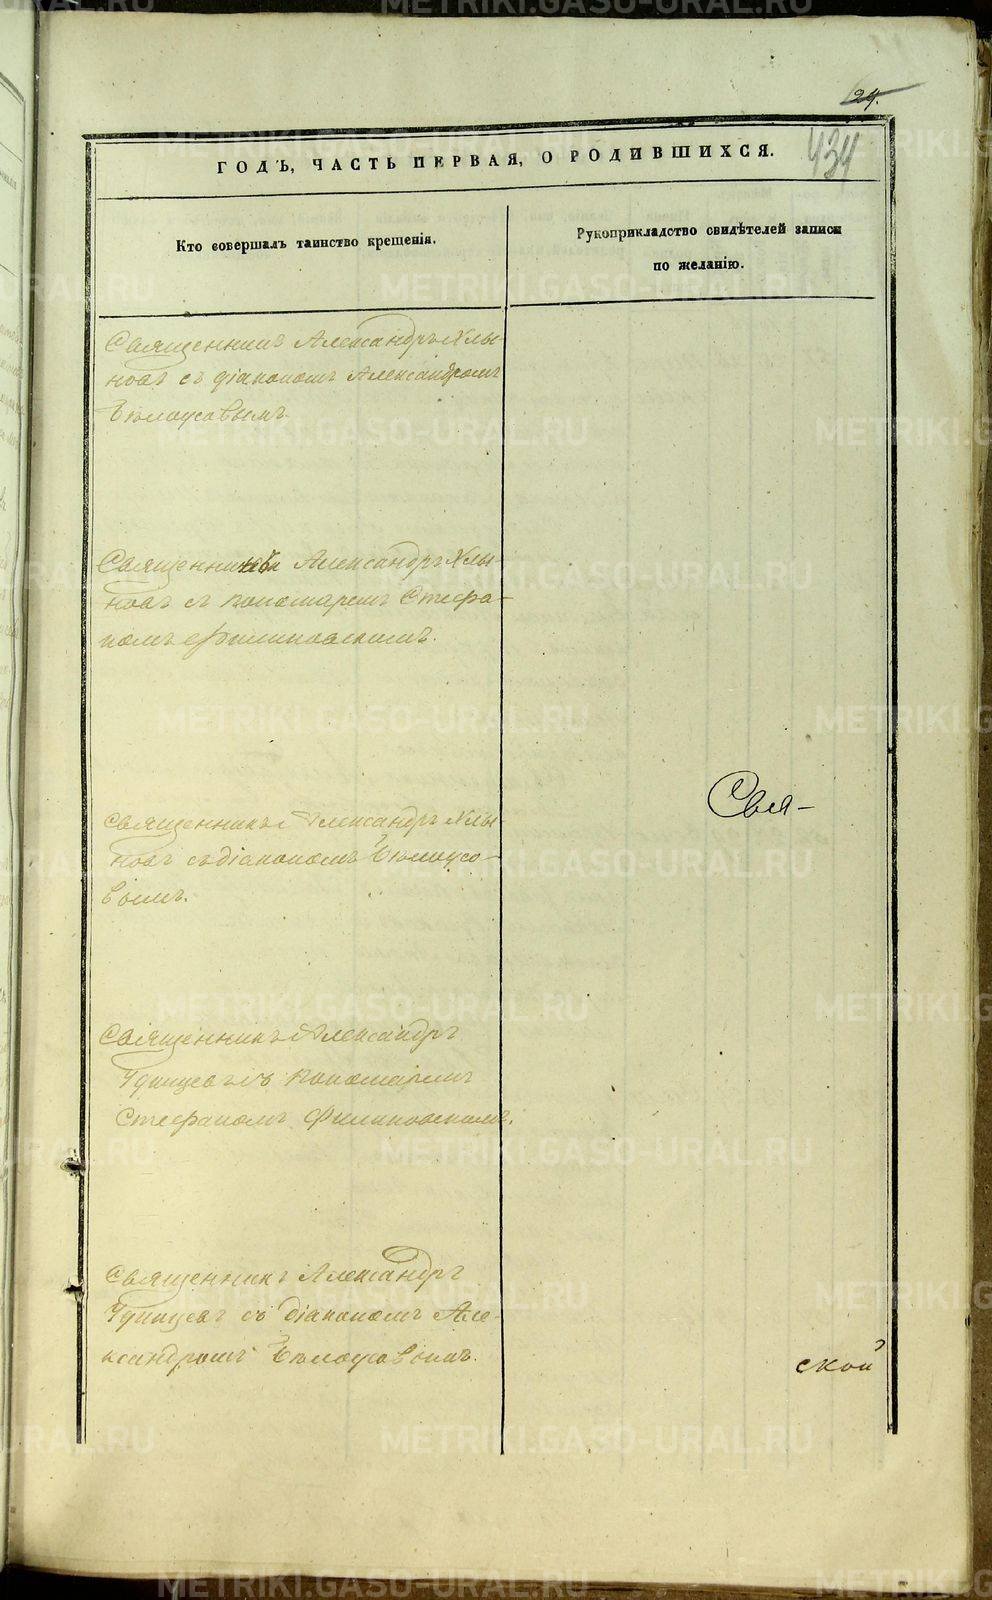 24.
434
ГОДЪ, ЧАСТЬ ПЕРВАЯ, О РОДИВШИХСЯ.
Кто совершалъ таинство крещенія.
Рукоприкладство свидѣтелей записи
по желанію.
Священникъ Александръ Хлы-
новъ съ діакономъ Александромъ
Бѣлоусовымъ.
Священникъ Александръ Хлы-
новъ съ пономаремъ Стефа-
номъ Филиповскимъ.
Свя-
Священникъ Александръ Хлы-
новъ съ діакономъ Бѣлоусо-
вымъ.
Священникъ Александръ
Удинцевъ съ пономаремъ
Стефаномъ Филиповскимъ.
Священникъ Александръ
Удинцевъ съ діакономъ Але-
ксандромъ Бѣлоусовымъ.
ской
METRIKI.GASO-URAL.RU